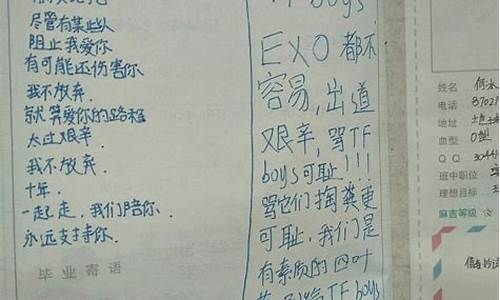 尽管有某些人
阻止我爱你
有可能还伤害你
我不放弃.
就算爱你的路程
太过艰辛.
我不放弃.
十年.
一起走,我们陪你.
永远支持你.
毕业寄语
boys
EXO都不
容易,出道
艰辛,骂TF
boys可耻!!!
骂它们掏粪更
可耻,我们是
有素质的四叶
TFboys
姓名 何
电话 8702
地址
血型 O型
QQ 3044
班中职位
理想目标
麻吉等级